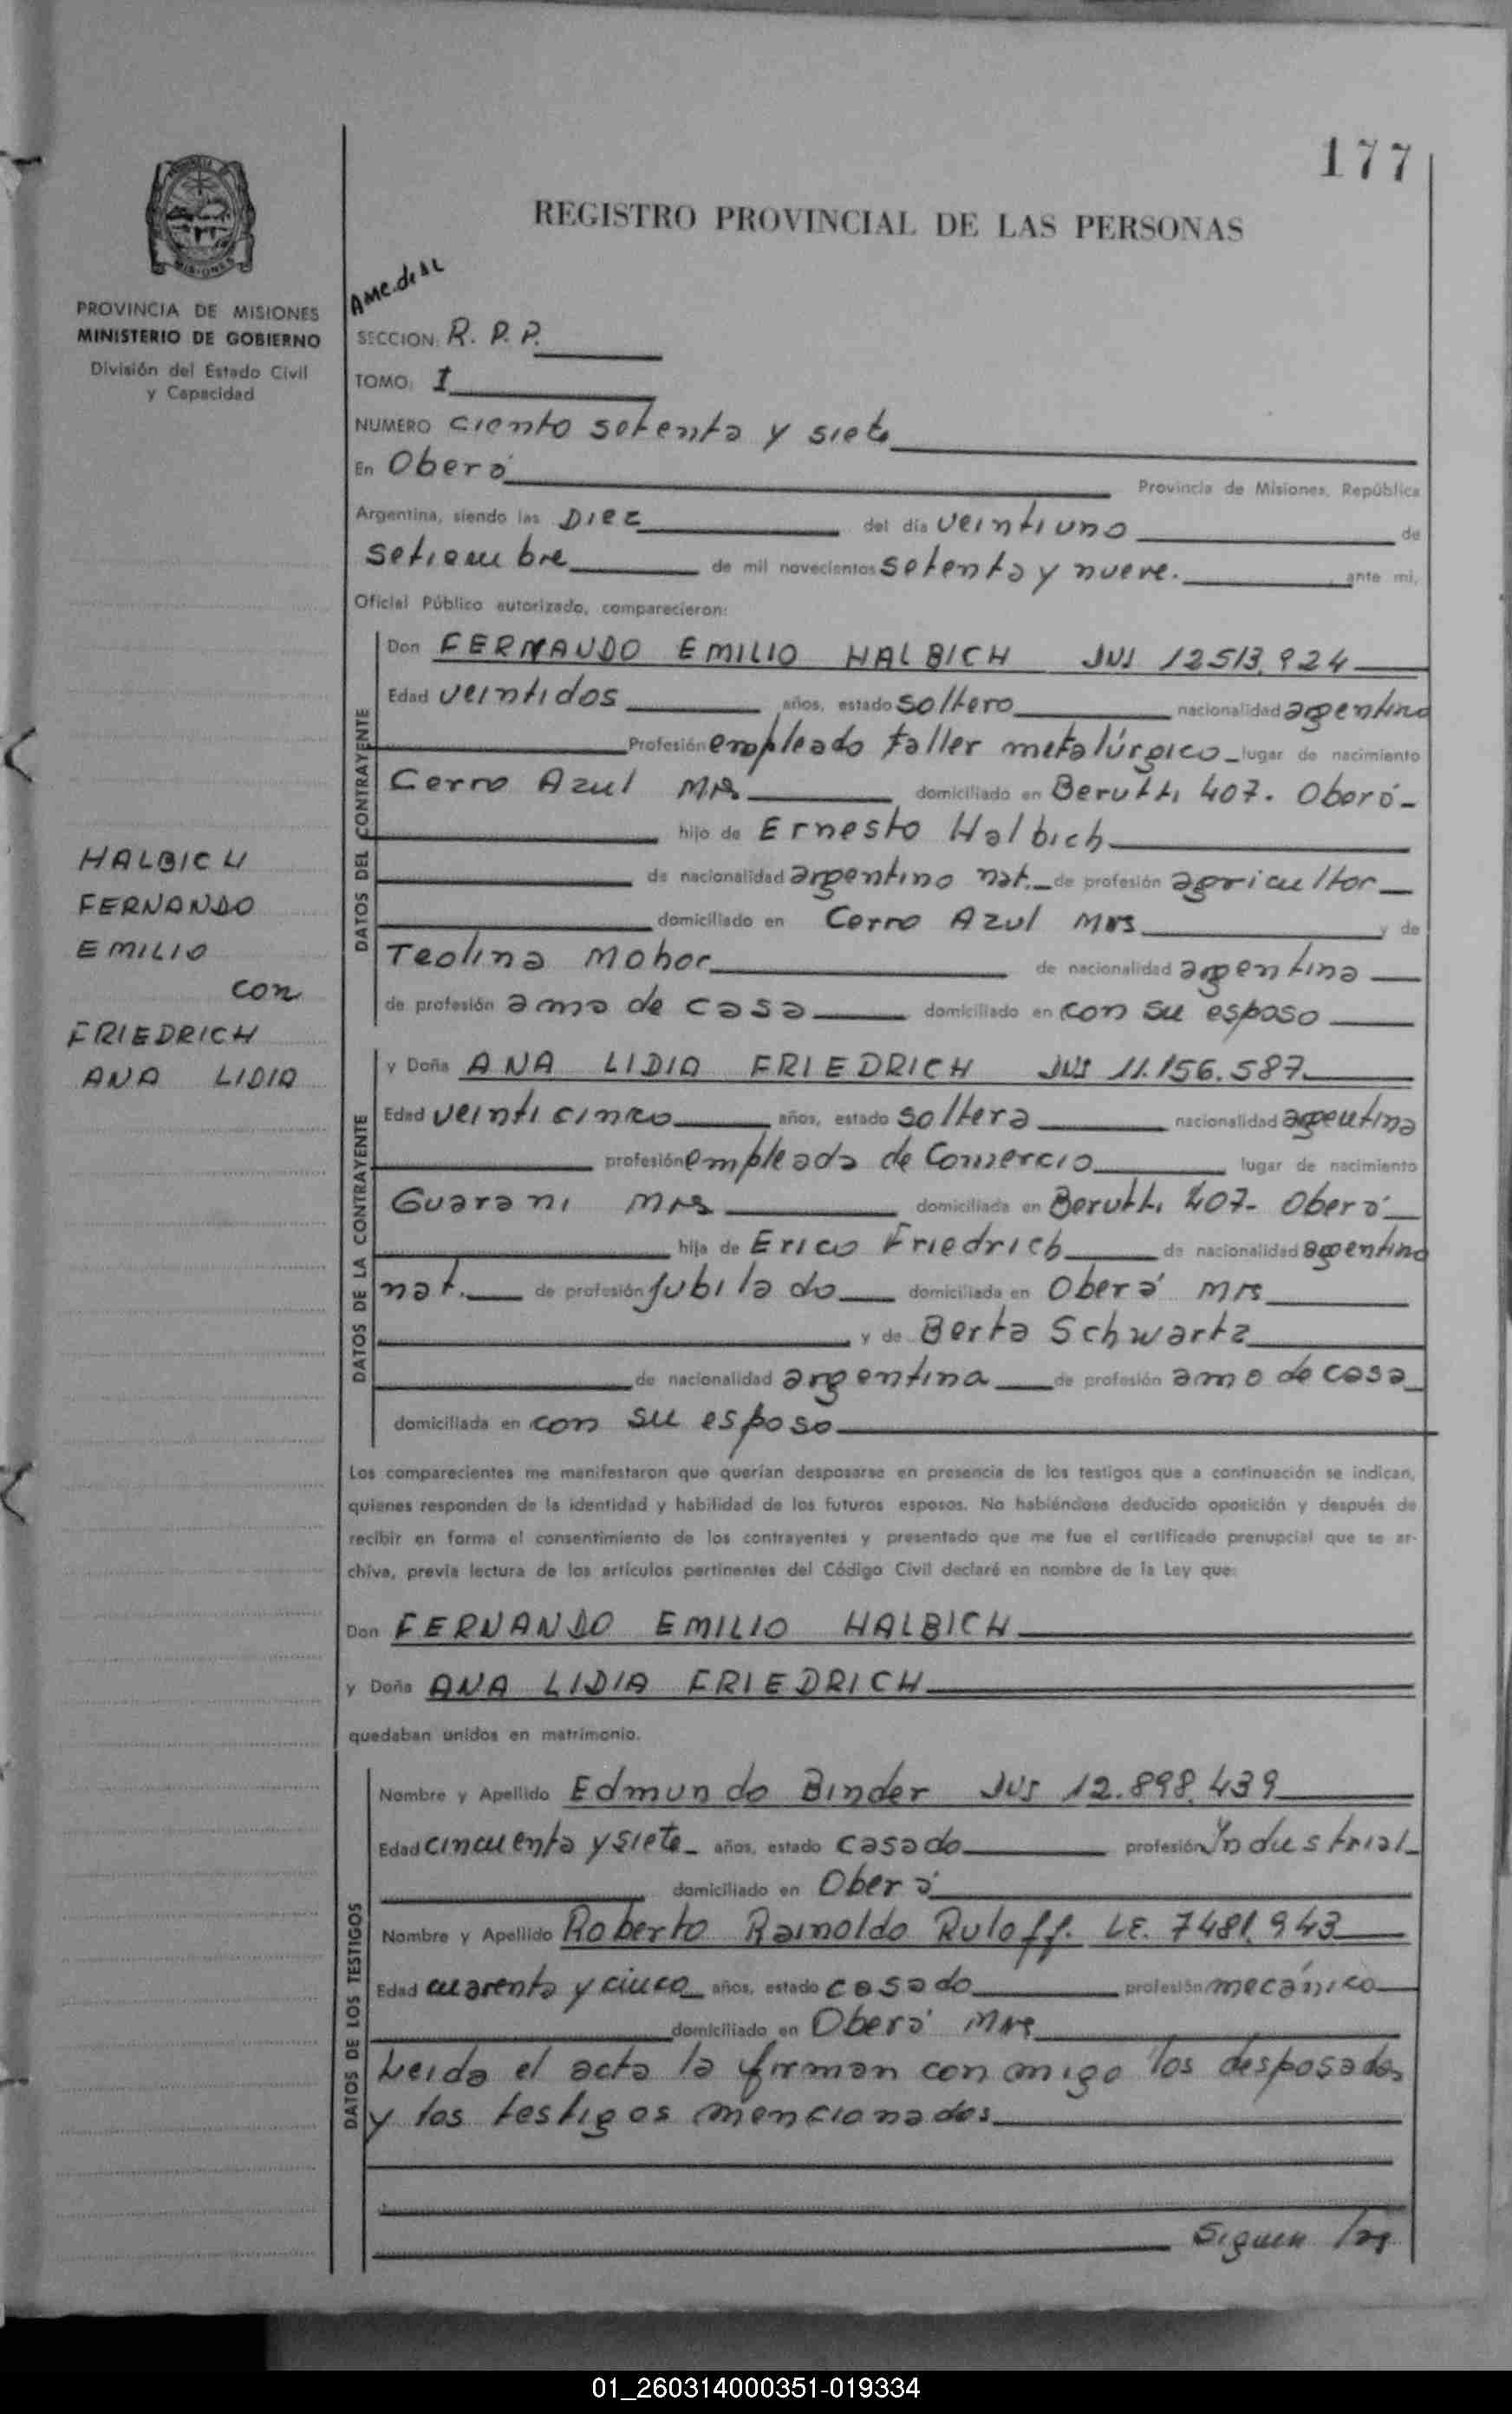 177
REGISTRO PROVINCIAL DE LAS PERSONAS
PROVINCIA DE MISIONES
MINISTERIO DE GOBIERNO
División del Estado Civil
y Capacidad
SECCION: R. P. P.
TOMO: I
NUMERO ciento setenta y siete
En Oberá Provincia de Misiones, República
Argentina, siendo las Diez del día veintiuno de
setiembre de mil novecientos setenta y nueve. ante mi,
Oficial Público autorizado, comparecieron:
HALBICH
FERNANDO
EMILIO
con
FRIEDRICH
ANA LIDIA
DATOS DEL CONTRAYENTE
Don FERNANDO EMILIO HALBICH 12513.924
Edad veintidos años, estado soltero nacionalidad argentino
Profesión empleado taller metalúrgico lugar de nacimiento
Cerro Azul Mns domiciliado en Berutti 407. Oberá
hijo de Ernesto Halbich
de nacionalidad argentino nat. de profesión agricultor
domiciliado en Cerro Azul Mns y de
Teolina de nacionalidad argentina
de profesión ama de casa domiciliado en con su esposo
DATOS DE LA CONTRAYENTE
y Doña ANA LIDIA FRIEDRICH 11.156.587
Edad veinticinco años, estado soltera nacionalidad argentina
profesión empleada de Comercio lugar de nacimiento
Guarani Mns domiciliada en Berutti 407- Oberá
hija de Erico Friedrich de nacionalidad argentino
nat. de profesión jubilado domiciliada en Oberá Mns
y de Berta Schwartz
de nacionalidad argentina de profesión ama de casa
domiciliada en con su esposo
Los comparecientes me manifestaron que querían desposarse en presencia de los testigos que a continuación se indican,
quienes responden de la identidad y habilidad de los futuros esposos. No habiéndose deducido oposición y después de
recibir en forma el consentimiento de los contrayentes y presentado que me fue el certificado prenupcial que se ar-
chiva, previa lectura de los artículos pertinentes del Código Civil declaré en nombre de la Ley que:
Don FERNANDO EMILIO HALBICH
y Doña ANA LIDIA FRIEDRICH
quedaban unidos en matrimonio.
DATOS DE LOS TESTIGOS
Nombre y Apellido Edmundo Binder 12.898.439
Edad cincuenta y siete años, estado casado profesión Industrial
domiciliado en Oberá
Nombre y Apellido Roberto Rainoldo Ruloff. LE. 7481.943
Edad cuarenta y cinco años, estado casado profesión mecánico
domiciliado en Oberá Mns
Leida el acta la firman conmigo los desposados
y los testigos mencionados
Siguen las
01_260314000351-019334